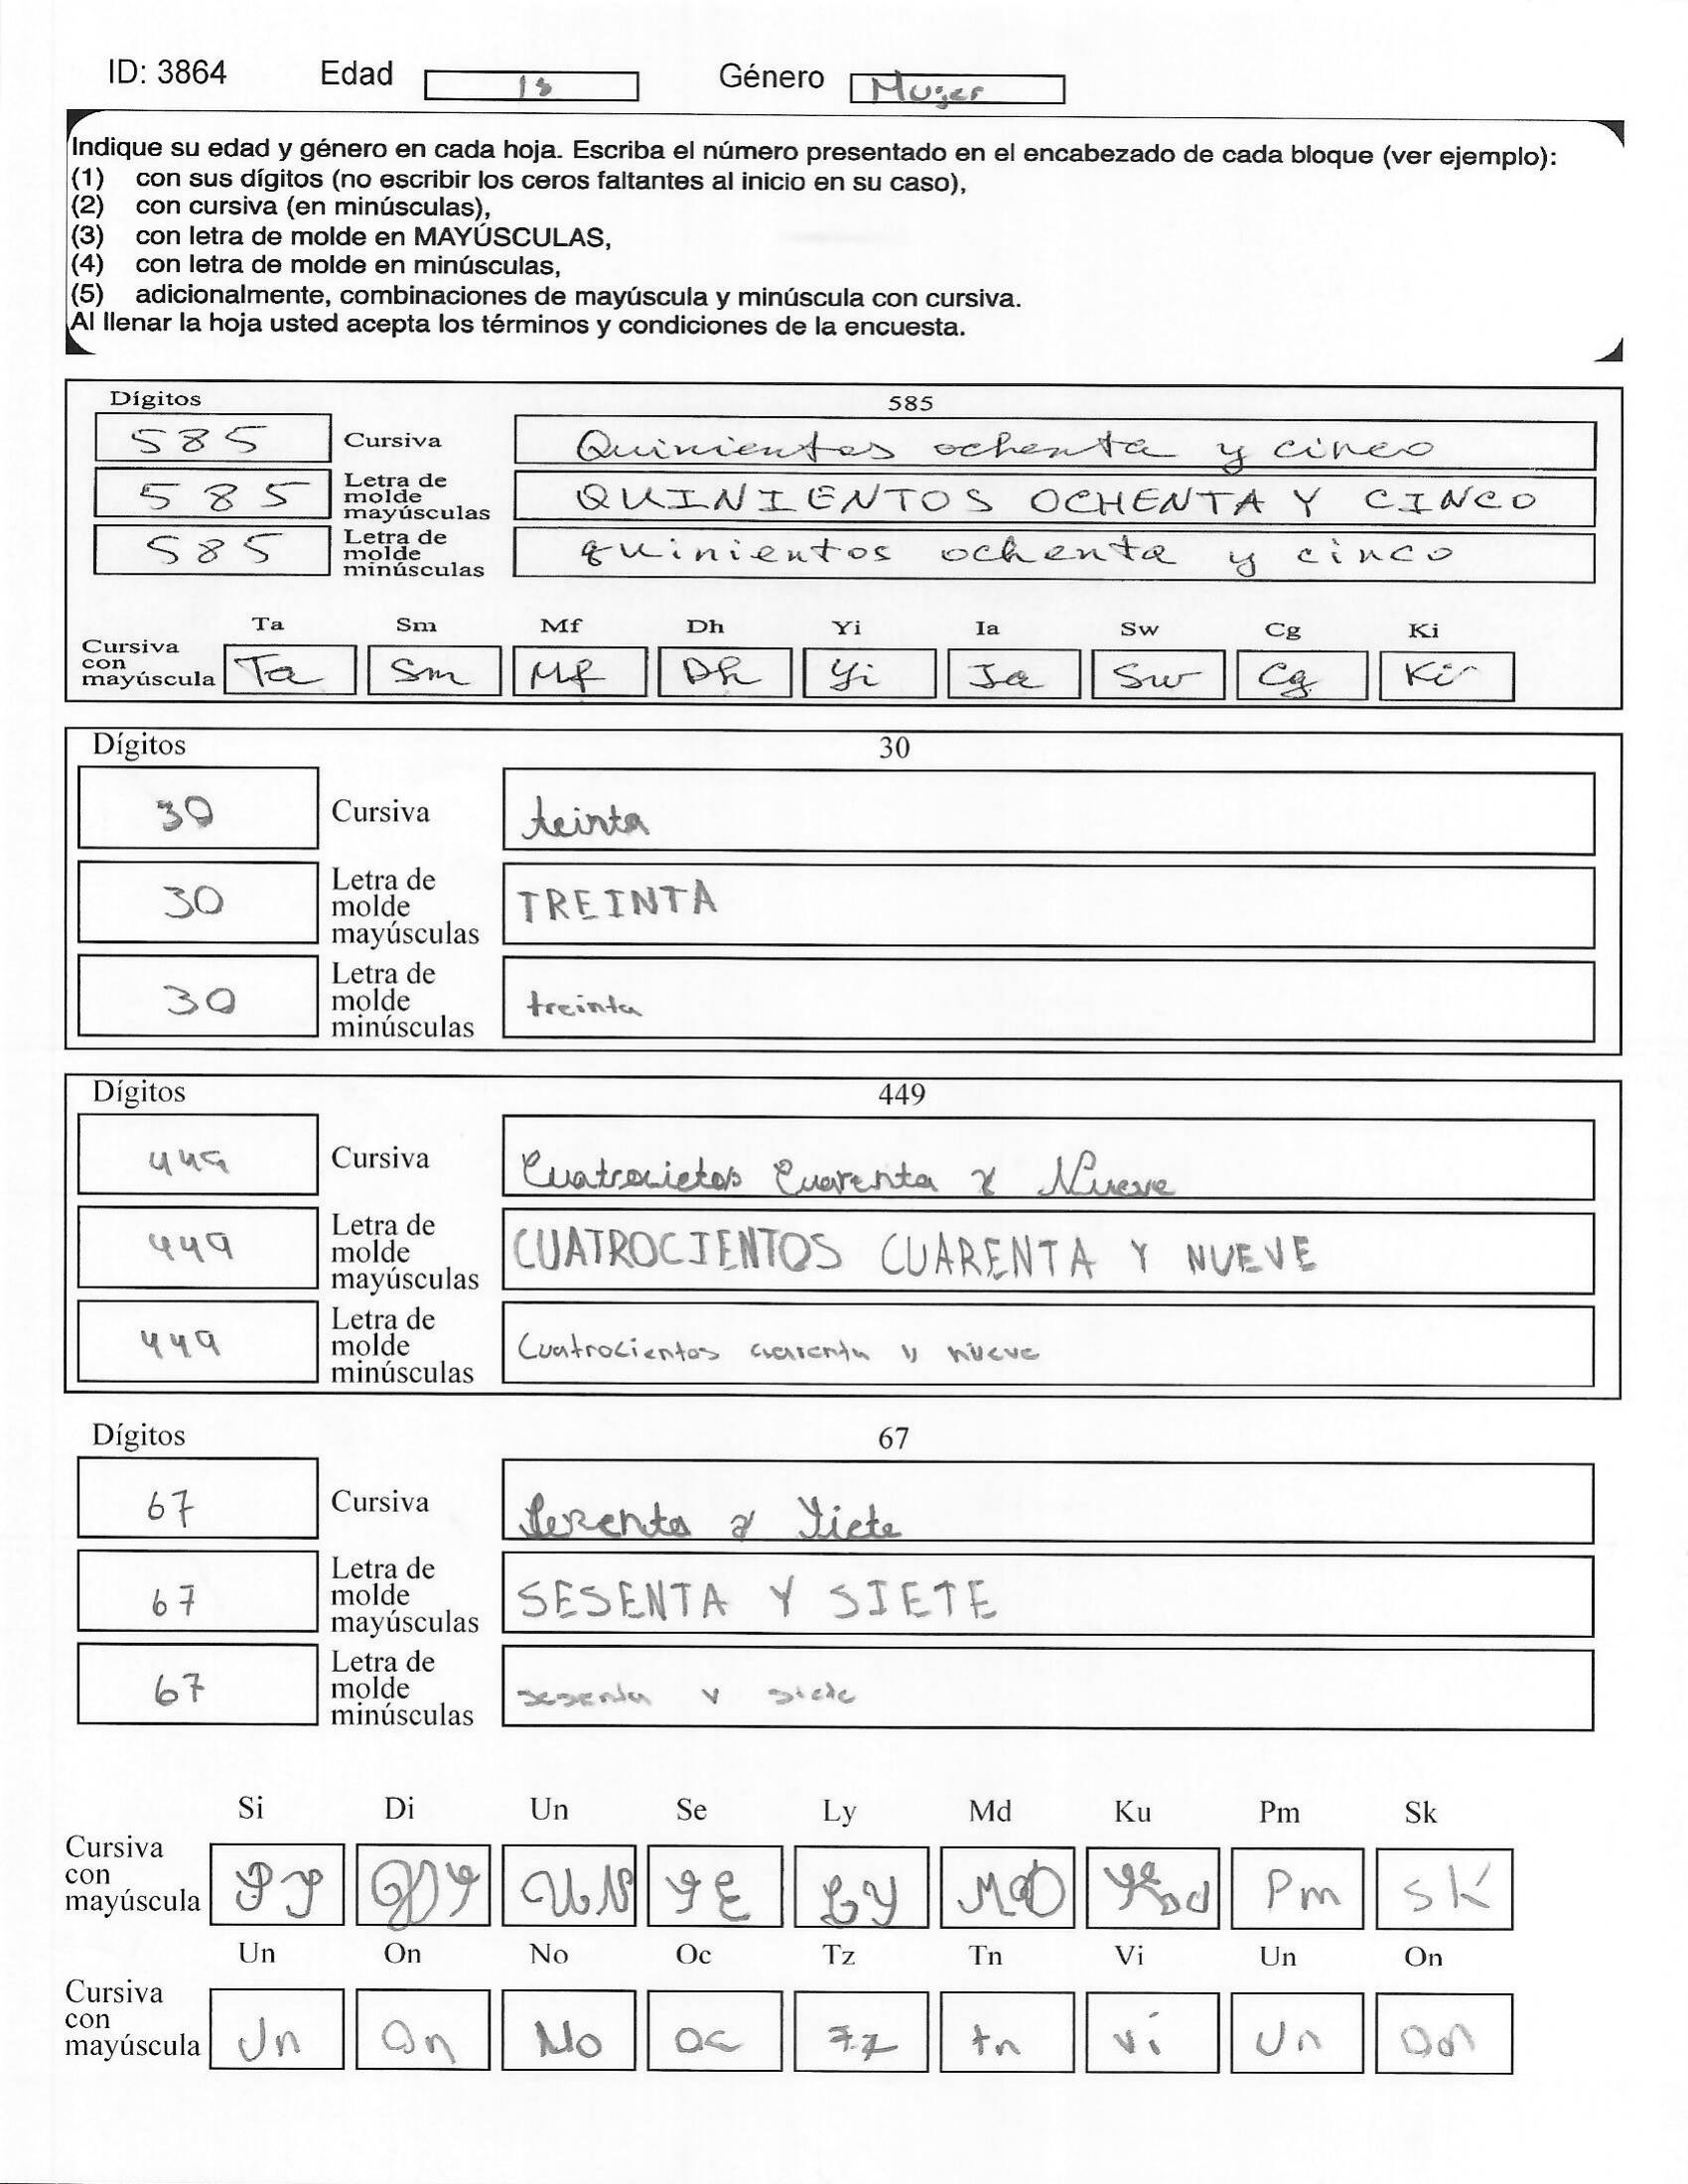 ID: 3864 Edad Género Mujer
Indique su edad y género en cada hoja. Escriba el número presentado en el encabezado de cada bloque (ver ejemplo):
(1) con sus dígitos (no escribir los ceros faltantes al inicio en su caso),
(2) con cursiva (en minúsculas),
(3) con letra de molde en MAYÚSCULAS,
(4) con letra de molde en minúsculas,
(5) adicionalmente, combinaciones de mayúscula y minúscula con cursiva.
Al llenar la hoja usted acepta los términos y condiciones de la encuesta.
Dígitos 585
585 Cursiva Quinientos ochenta y cinco
585 Letra de molde mayúsculas QUINIENTOS OCHENTA Y CINCO
585 Letra de molde minúsculas quinientos ochenta y cinco
Ta Sm Mf Dh Yi Ia Sw Cg Ki
Cursiva con mayúscula Ta Sm Mf Dh Yi Ia Sw Cg Ki
Dígitos 30
30 Cursiva teinta
30 Letra de molde mayúsculas TREINTA
30 Letra de molde minúsculas treinta
Dígitos 449
449 Cursiva Cuatrocietos Cuarenta y Nueve
449 Letra de molde mayúsculas CUATROCIENTOS CUARENTA Y NUEVE
449 Letra de molde minúsculas Cuatrocientos cuarenta y nueve
Dígitos 67
67 Cursiva Sesenta y Siete
67 Letra de molde mayúsculas SESENTA Y SIETE
67 Letra de molde minúsculas sesenta y siete
Si Di Un Se Ly Md Ku Pm Sk
Cursiva con mayúscula UN SE LY MD Pm SK
Un On No Oc Tz Tn Vi Un On
Cursiva con mayúscula Un On No Oc Tz tn Vi Un On